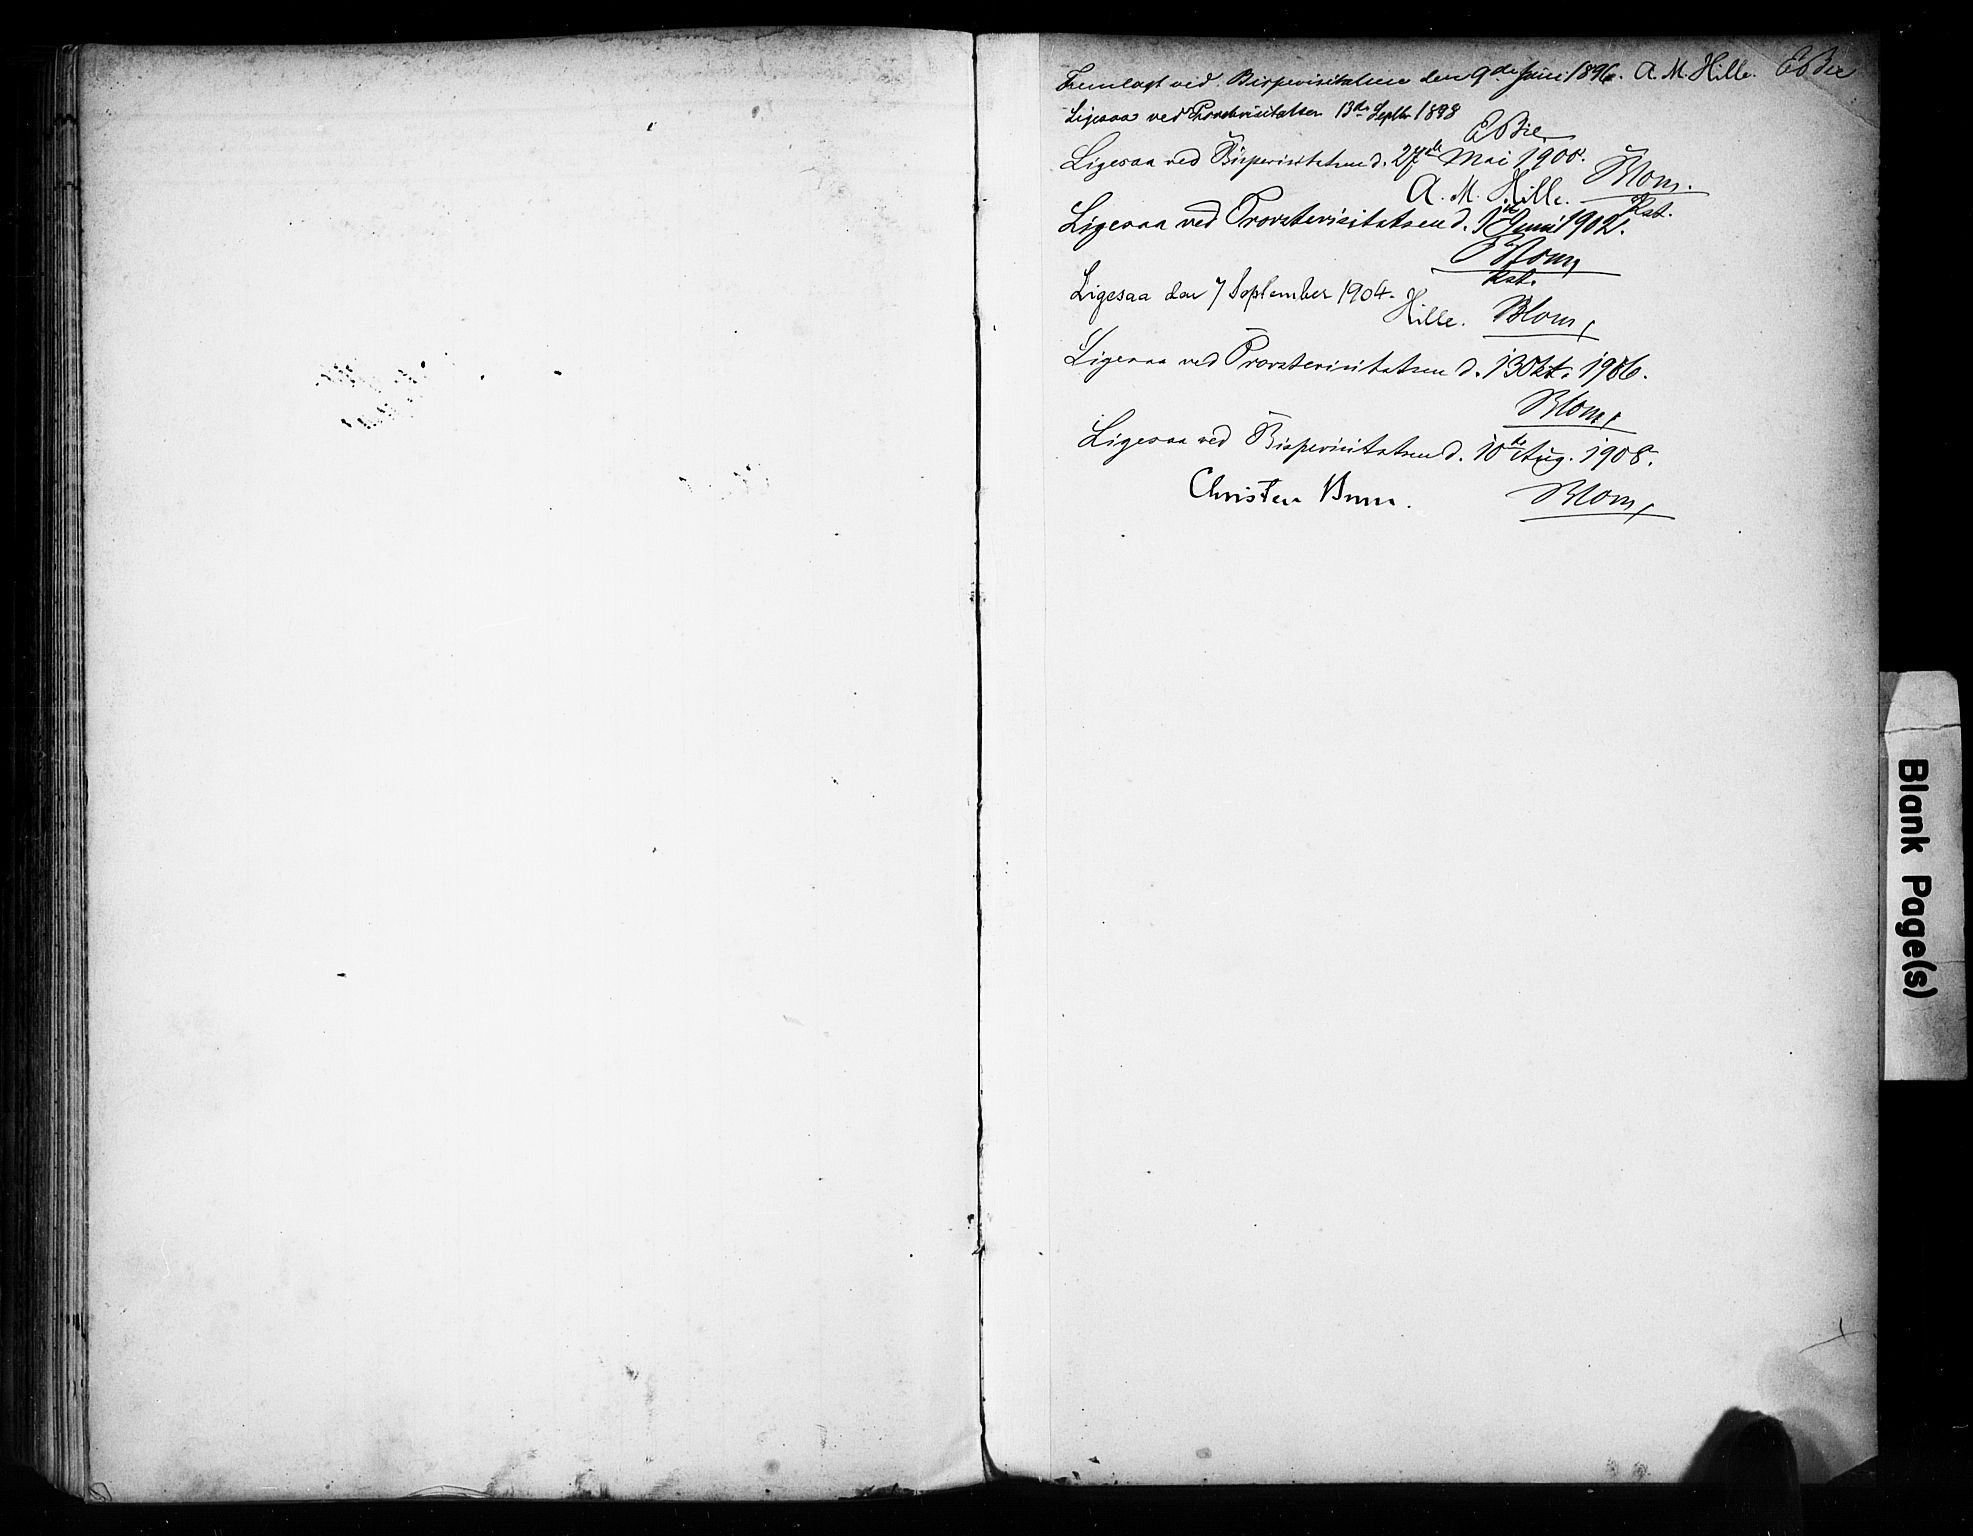 Fremlagt ved Bispevisitatsen den 9de Juni 1896. A. M. Hille. E Bie
Ligesaa ved Provstevisitatsen 13de Septbr 1898
E Bie
Ligesaa ved Bispevisitatsen d. 27de Mai 1900.
A. M. Hille. Blom.
Kst.
Ligesaa ved Provstevisitatsen d. 1ste Juni 1902.
Blom
Kst.
Ligesaa den 7 September 1904.
Hille. Blom
Ligesaa ved Provstevisitatsen d. 13 Okt. 1906.
Blom
Ligesaa ved Bispevisitatsen d. 10de Aug. 1908.
Christen Brun. Blom
Blank Page(s)